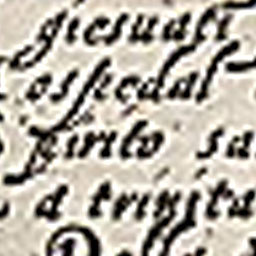 giesuati
ospedal
spirito sa
d trinita